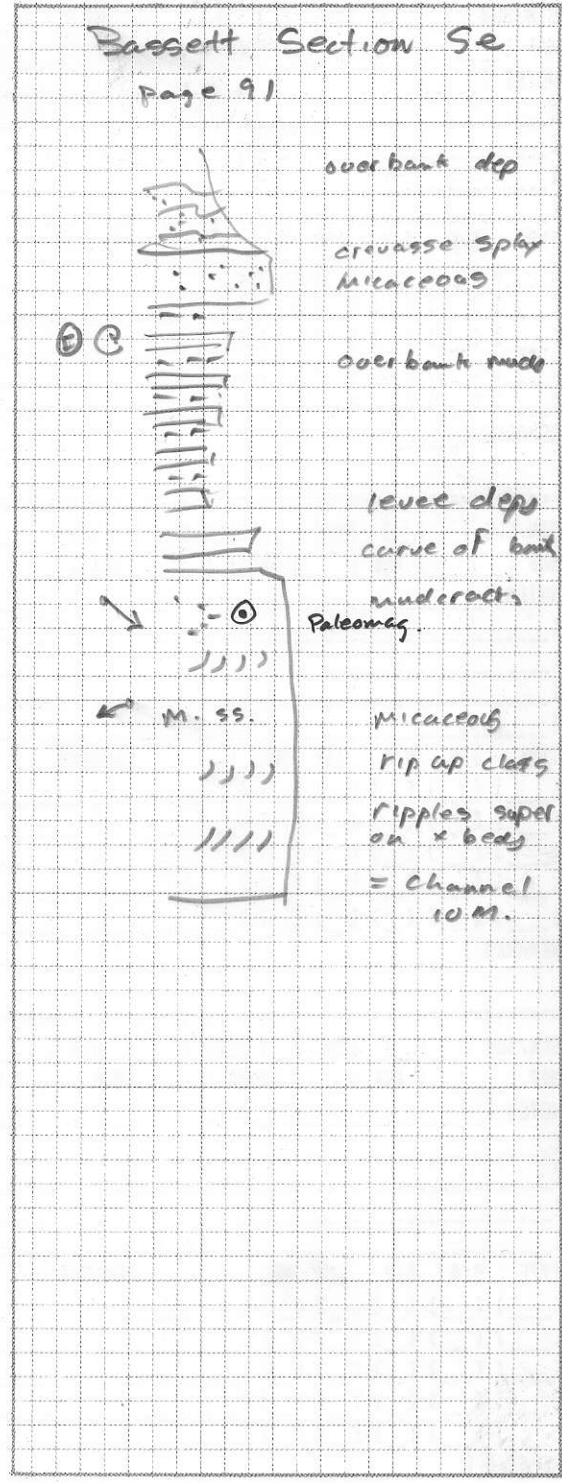 Bassett Section 5e
page 91
overbank dep
crevasse splay
micaceous
E C
overbank muds
levee deps
curve of bank
mudcracks
Paleomag.
M. ss.
micaceous
rip up clasts
ripples super
on x beds
= Channel
10 M.